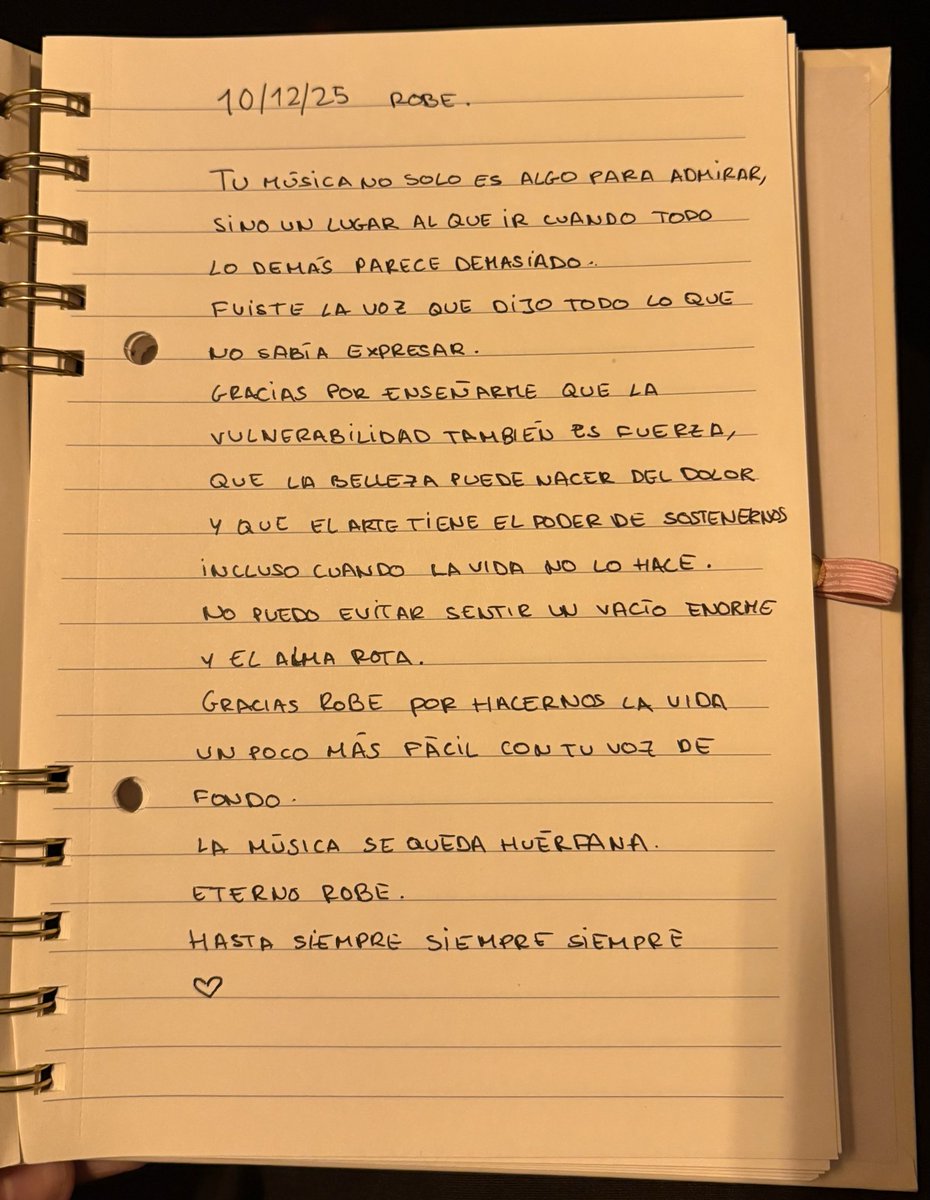 10/12/25 ROBE.
TU MÚSICA NO SOLO ES ALGO PARA ADMIRAR,
SINO UN LUGAR AL QUE IR CUANDO TODO
LO DEMÁS PARECE DEMASIADO.
FUISTE LA VOZ QUE DIJO TODO LO QUE
NO SABÍA EXPRESAR.
GRACIAS POR ENSEÑARME QUE LA
VULNERABILIDAD TAMBIÉN ES FUERZA,
QUE LA BELLEZA PUEDE NACER DEL DOLOR
Y QUE EL ARTE TIENE EL PODER DE SOSTENERNOS
INCLUSO CUANDO LA VIDA NO LO HACE.
NO PUEDO EVITAR SENTIR UN VACÍO ENORME
Y EL ALMA ROTA.
GRACIAS ROBE POR HACERNOS LA VIDA
UN POCO MÁS FÁCIL CON TU VOZ DE
FONDO.
LA MÚSICA SE QUEDA HUÉRFANA.
ETERNO ROBE.
HASTA SIEMPRE SIEMPRE SIEMPRE
♡